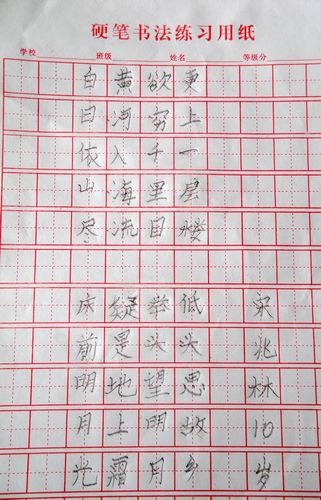 硬笔书法练习用纸
学校 班级 姓名 等级分
白日依山尽
黄河入海流
欲穷千里目
更上一层楼
床前明月光
疑是地上霜
举头望明月
低头思故乡
宋兆林10岁